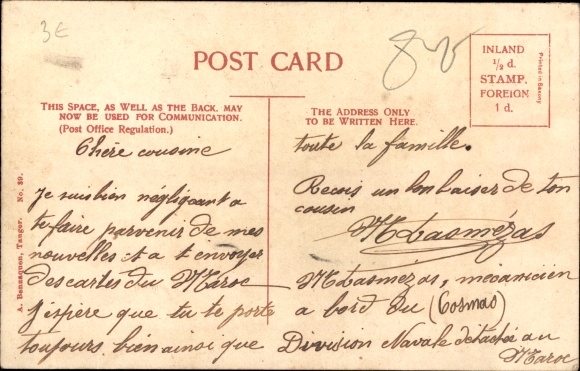 3€
POST CARD
INLAND
½ d.
STAMP.
FOREIGN
1 d.
Printed in Saxony
THIS SPACE, AS WELL AS THE BACK, MAY
NOW BE USED FOR COMMUNICATION.
(Post Office Regulation.)
THE ADDRESS ONLY
TO BE WRITTEN HERE.
A. Benzaquen, Tanger. No. 39.
Chère cousine
Je suis bien négligeant a
te faire parvenir de mes
nouvelles et a t envoyer
des cartes du Maroc
J'espère que tu te porte
toujours bien ainsi que
toute la famille.
Recois un bon baiser de ton
cousin
M Lasmézas
M Lasmézas, mécanicien
a bord du (Cosmao)
Division Navale détachée au
Maroc